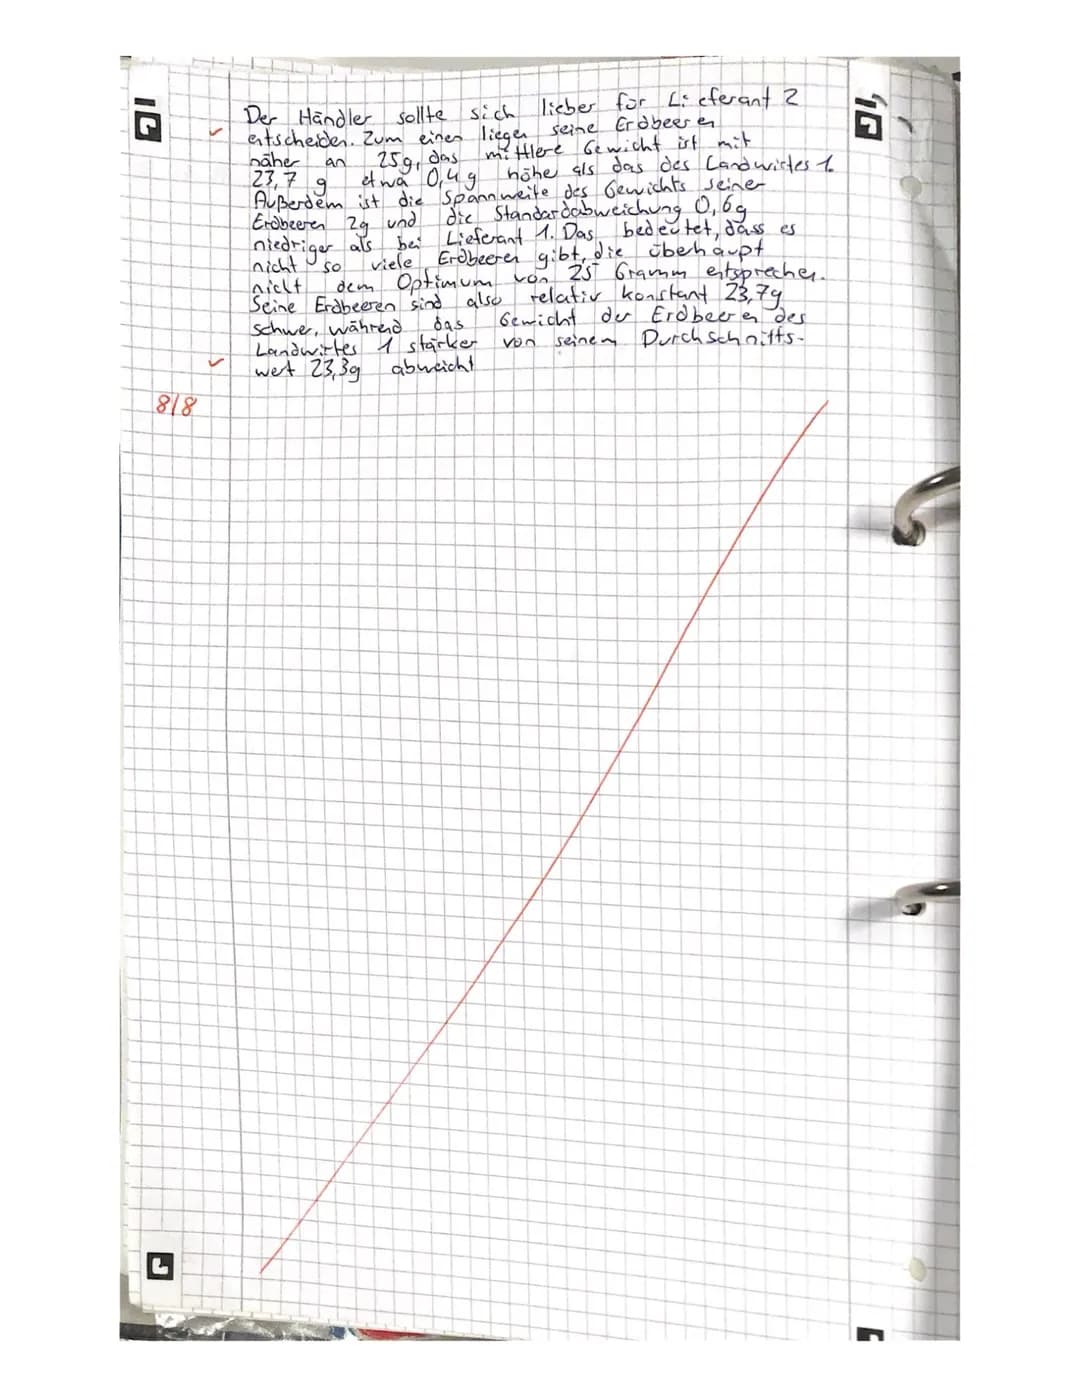 Der Händler sollte sich lieber für Lieferant 2
entscheiden. Zum einen liegen seine Erdbeeren
näher an 25g, das mittlere Gewicht ist mit
23,7 g etwa 0,4g höher als das des Landwirtes 1.
Außerdem ist die Spannweite des Gewichts seiner
Erdbeeren 2g und die Standardabweichung 0,6g
niedriger als bei Lieferant 1. Das bedeutet, dass es
nicht so viele Erdbeeren gibt, die überhaupt
nicht dem Optimum von 25 Gramm entsprechen.
Seine Erdbeeren sind also relativ konstant 23,7g
schwer, während das Gewicht der Erdbeeren des
Landwirtes 1 stärker von seinem Durchschnitts-
wert 23,3g abweicht
8/8